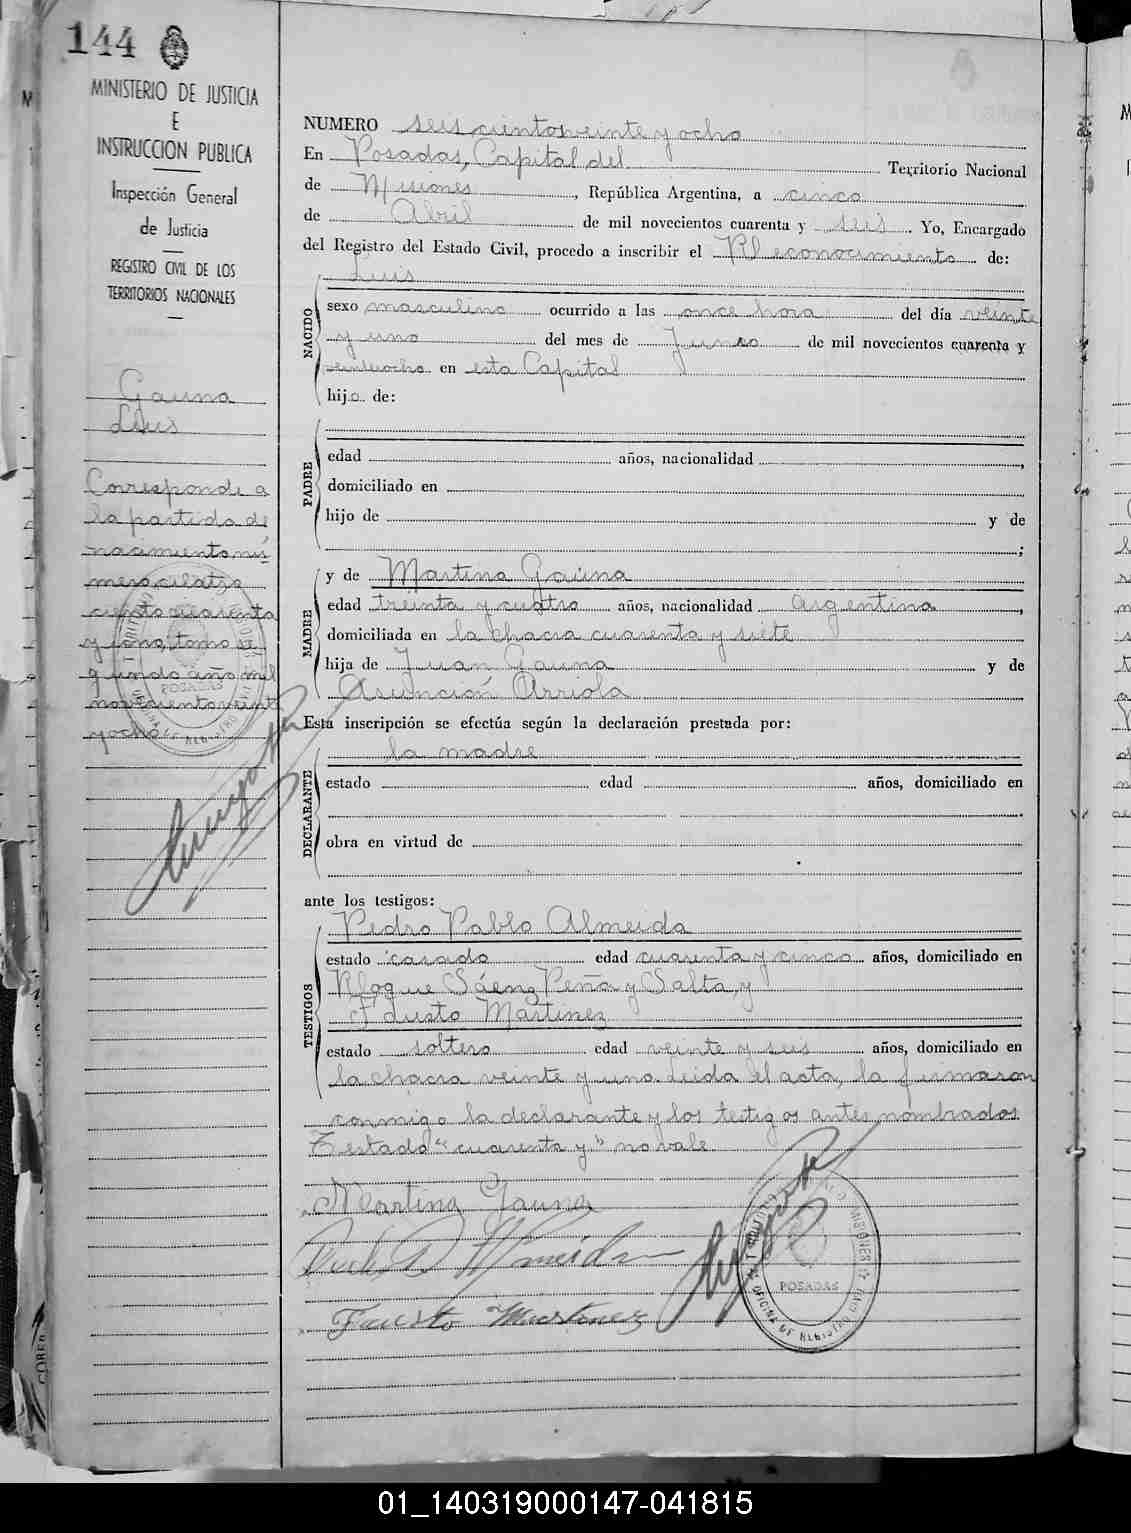 144
MINISTERIO DE JUSTICIA
E
INSTRUCCION PUBLICA
Inspección General
de Justicia
REGISTRO CIVIL DE LOS
TERRITORIOS NACIONALES
Gauna
Luis
Corresponde a
la partida de
nacimiento nú
mero
ciento cuarenta
y uno, tomo se
gundo año mil
novecientos veinti
y ocho
NUMERO seiscientos veinte y ocho
En Posadas, Capital del Territorio Nacional
de Misiones, República Argentina, a cinco
de Abril de mil novecientos cuarenta y seis. Yo, Encargado
del Registro del Estado Civil, procedo a inscribir el Reconocimiento de:
Luis
NACIDO
sexo masculino ocurrido a las once hora del día veinte
y uno del mes de Junio de mil novecientos cuarenta y
veinteocho en esta Capital
hijo de:
PADRE
edad años, nacionalidad ,
domiciliado en
hijo de y de
;
MADRE
y de Martina Gauna
edad treinta y cuatro años, nacionalidad argentina,
domiciliada en la chacra cuarenta y siete
hija de Juan Gauna y de
Asunción Arriola
Esta inscripción se efectúa según la declaración prestada por:
DECLARANTE
la madre
estado edad años, domiciliado en
obra en virtud de
ante los testigos:
TESTIGOS
Pedro Pablo Almeida
estado casado edad cuarenta y cinco años, domiciliado en
Roque Sáenz Peña y Salta, y
Fausto Martinez
estado soltero edad veinte y seis años, domiciliado en
la chacra veinte y uno. Leida el acta, la firmaron
conmigo la declarante y los testigos antes nombrados.
Testado "cuarenta y" no vale.
Martina Gauna
Almeida
Fausto Martinez
POSADAS
OFICINA DE REGISTRO CIVIL
POSADAS
OFICINA DE REGISTRO CIVIL
01_140319000147-041815